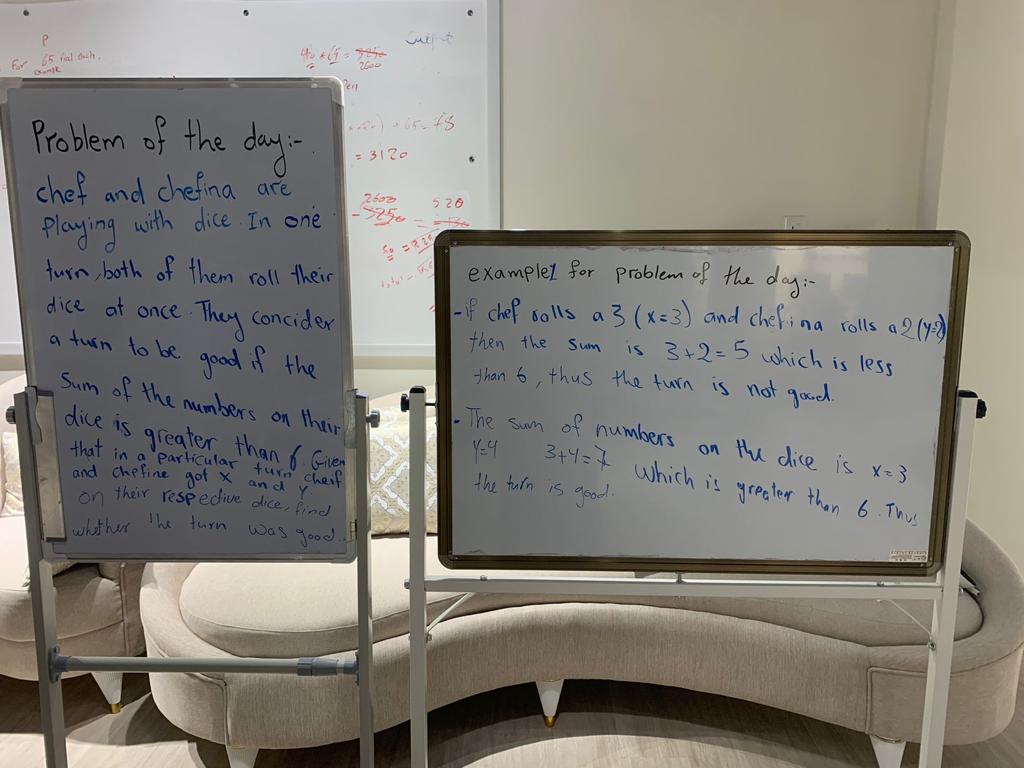 P
For 65 rial each.
example
Output
2600
= 3120
2600
520
Problem of the day:-
chef and chefina are
playing with dice. In one
turn, both of them roll their
dice at once. They concider
a turn to be good if the
sum of the numbers on their
dice is greater than 6. Given
that in a particular turn cheif
and chefine got x and y
on their respective dice, find
whether the turn was good.
example1 for problem of the day:-
- if chef rolls a 3 (x=3) and chefina rolls a 2 (y=2)
then the sum is 3+2=5 which is less
than 6, thus the turn is not good.
- The sum of numbers on the dice is x=3
y=4 3+4=7 which is greater than 6. Thus
the turn is good.